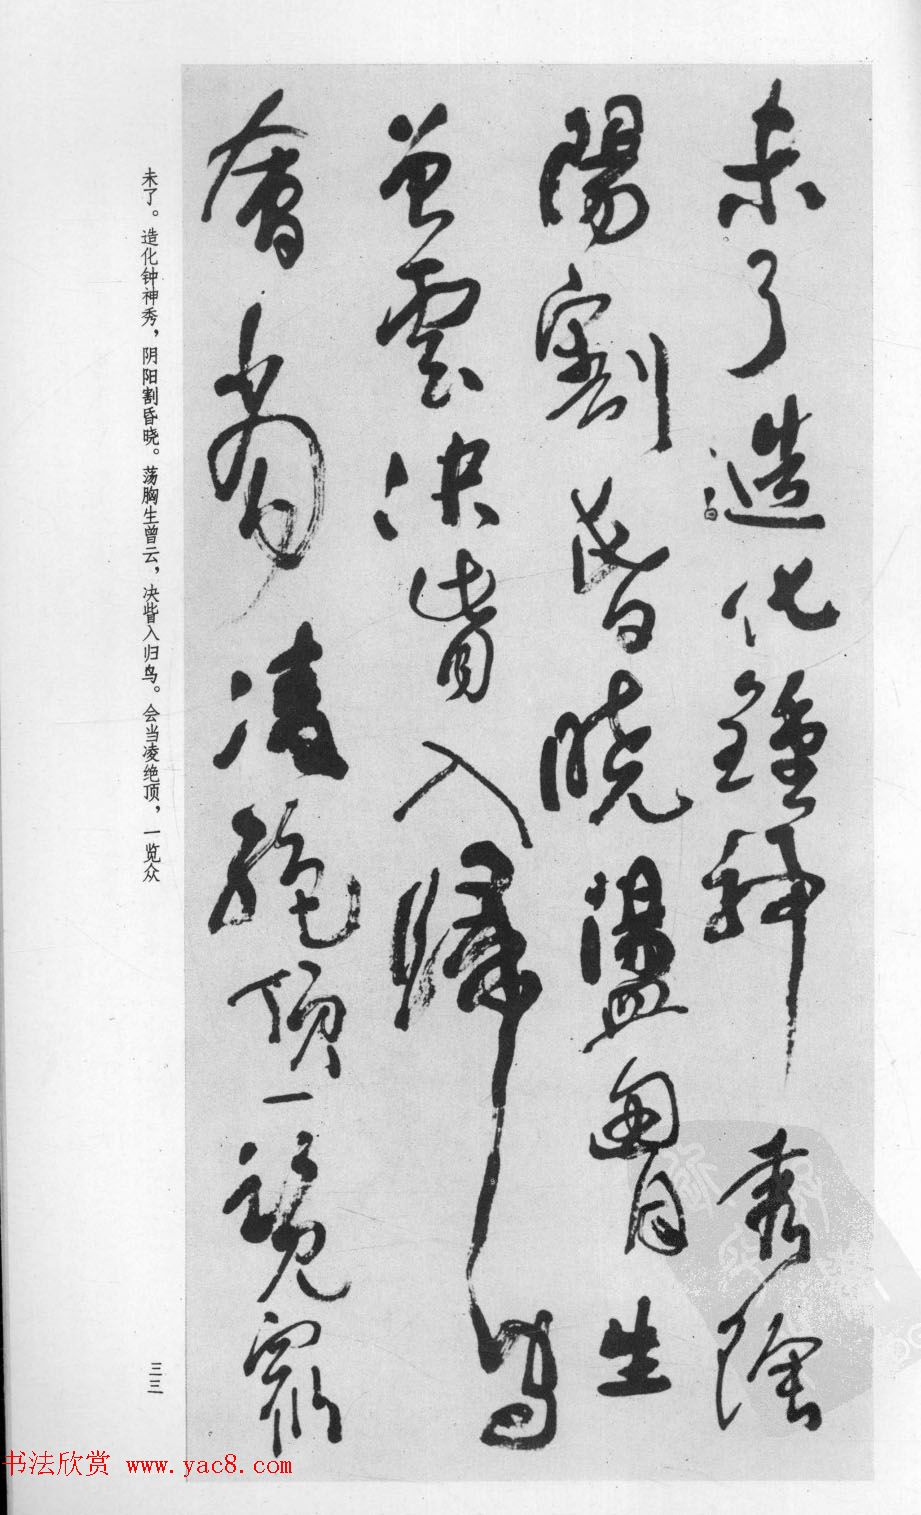 未了造化鍾神秀陰
陽割昏曉盪胷生
曾雲決眥入歸鳥
會當凌絕頂一覽眾
未了。造化钟神秀，阴阳割昏晓。荡胸生曾云，决眥入归鸟。会当凌绝顶，一览众
三三
书法欣赏 www.yac8.com